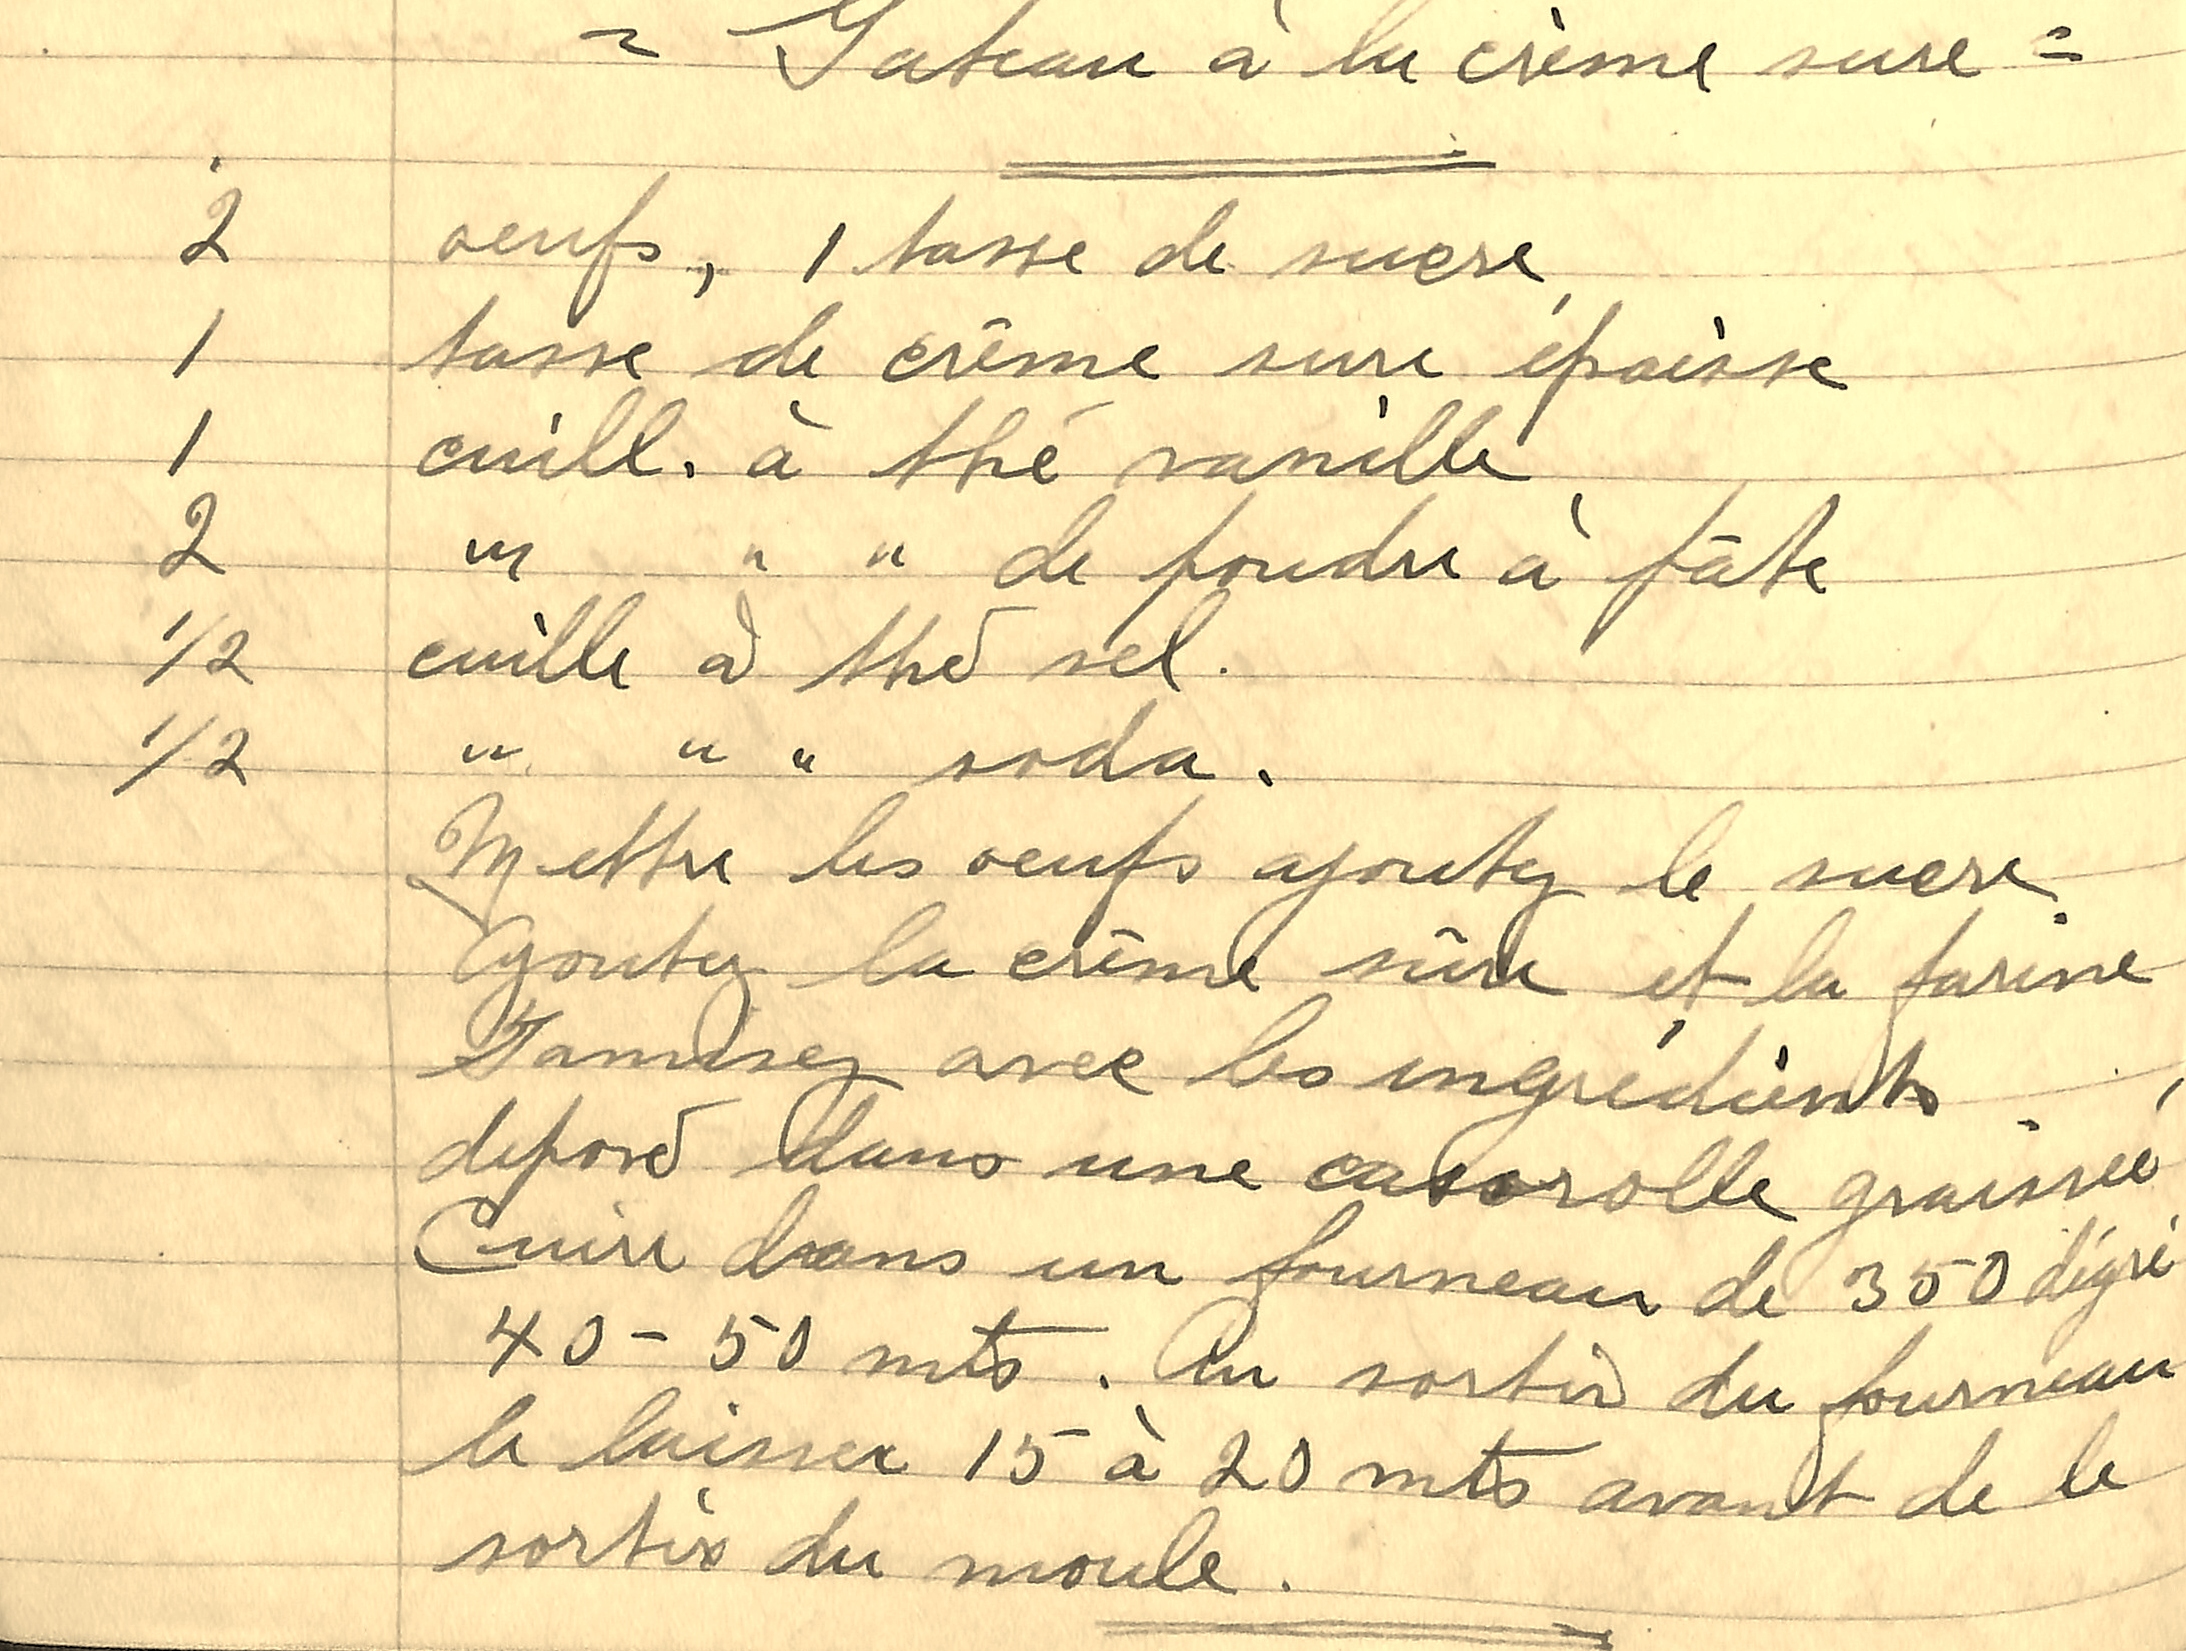 = Gateau à la crème sure =
2 oeufs, 1 tasse de sucre
1 tasse de crême sure épaisse
1 cuill. à thé vanille
2 " " " de poudre à pâte
1/2 cuille à thé sel.
1/2 " " " soda.
Mettre les oeufs ajoutez le sucre
Ajoutez la crême sûre et la farine
Tamisez avec les ingrédients.
deposé dans une casserolle graissée
Cuire dans un fourneau de 350 dégré
40 - 50 mts. Au sortir du fourneau
le laisser 15 à 20 mts avant de le
sortir du moule.